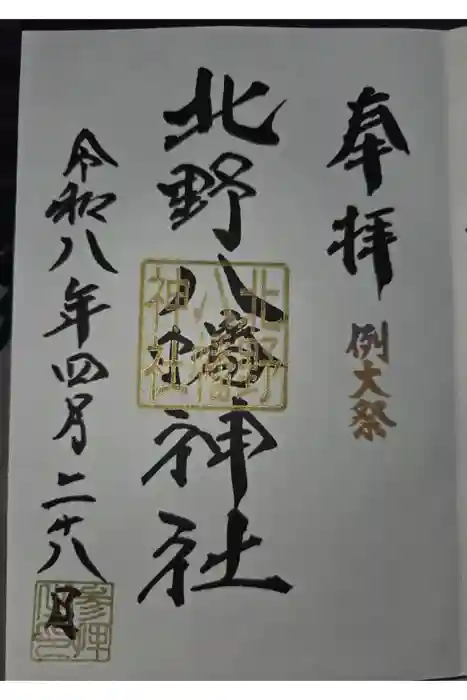 奉拝
例大祭
北野八幡神社
北野
八幡
神社
令和八年四月二十八日
参拝